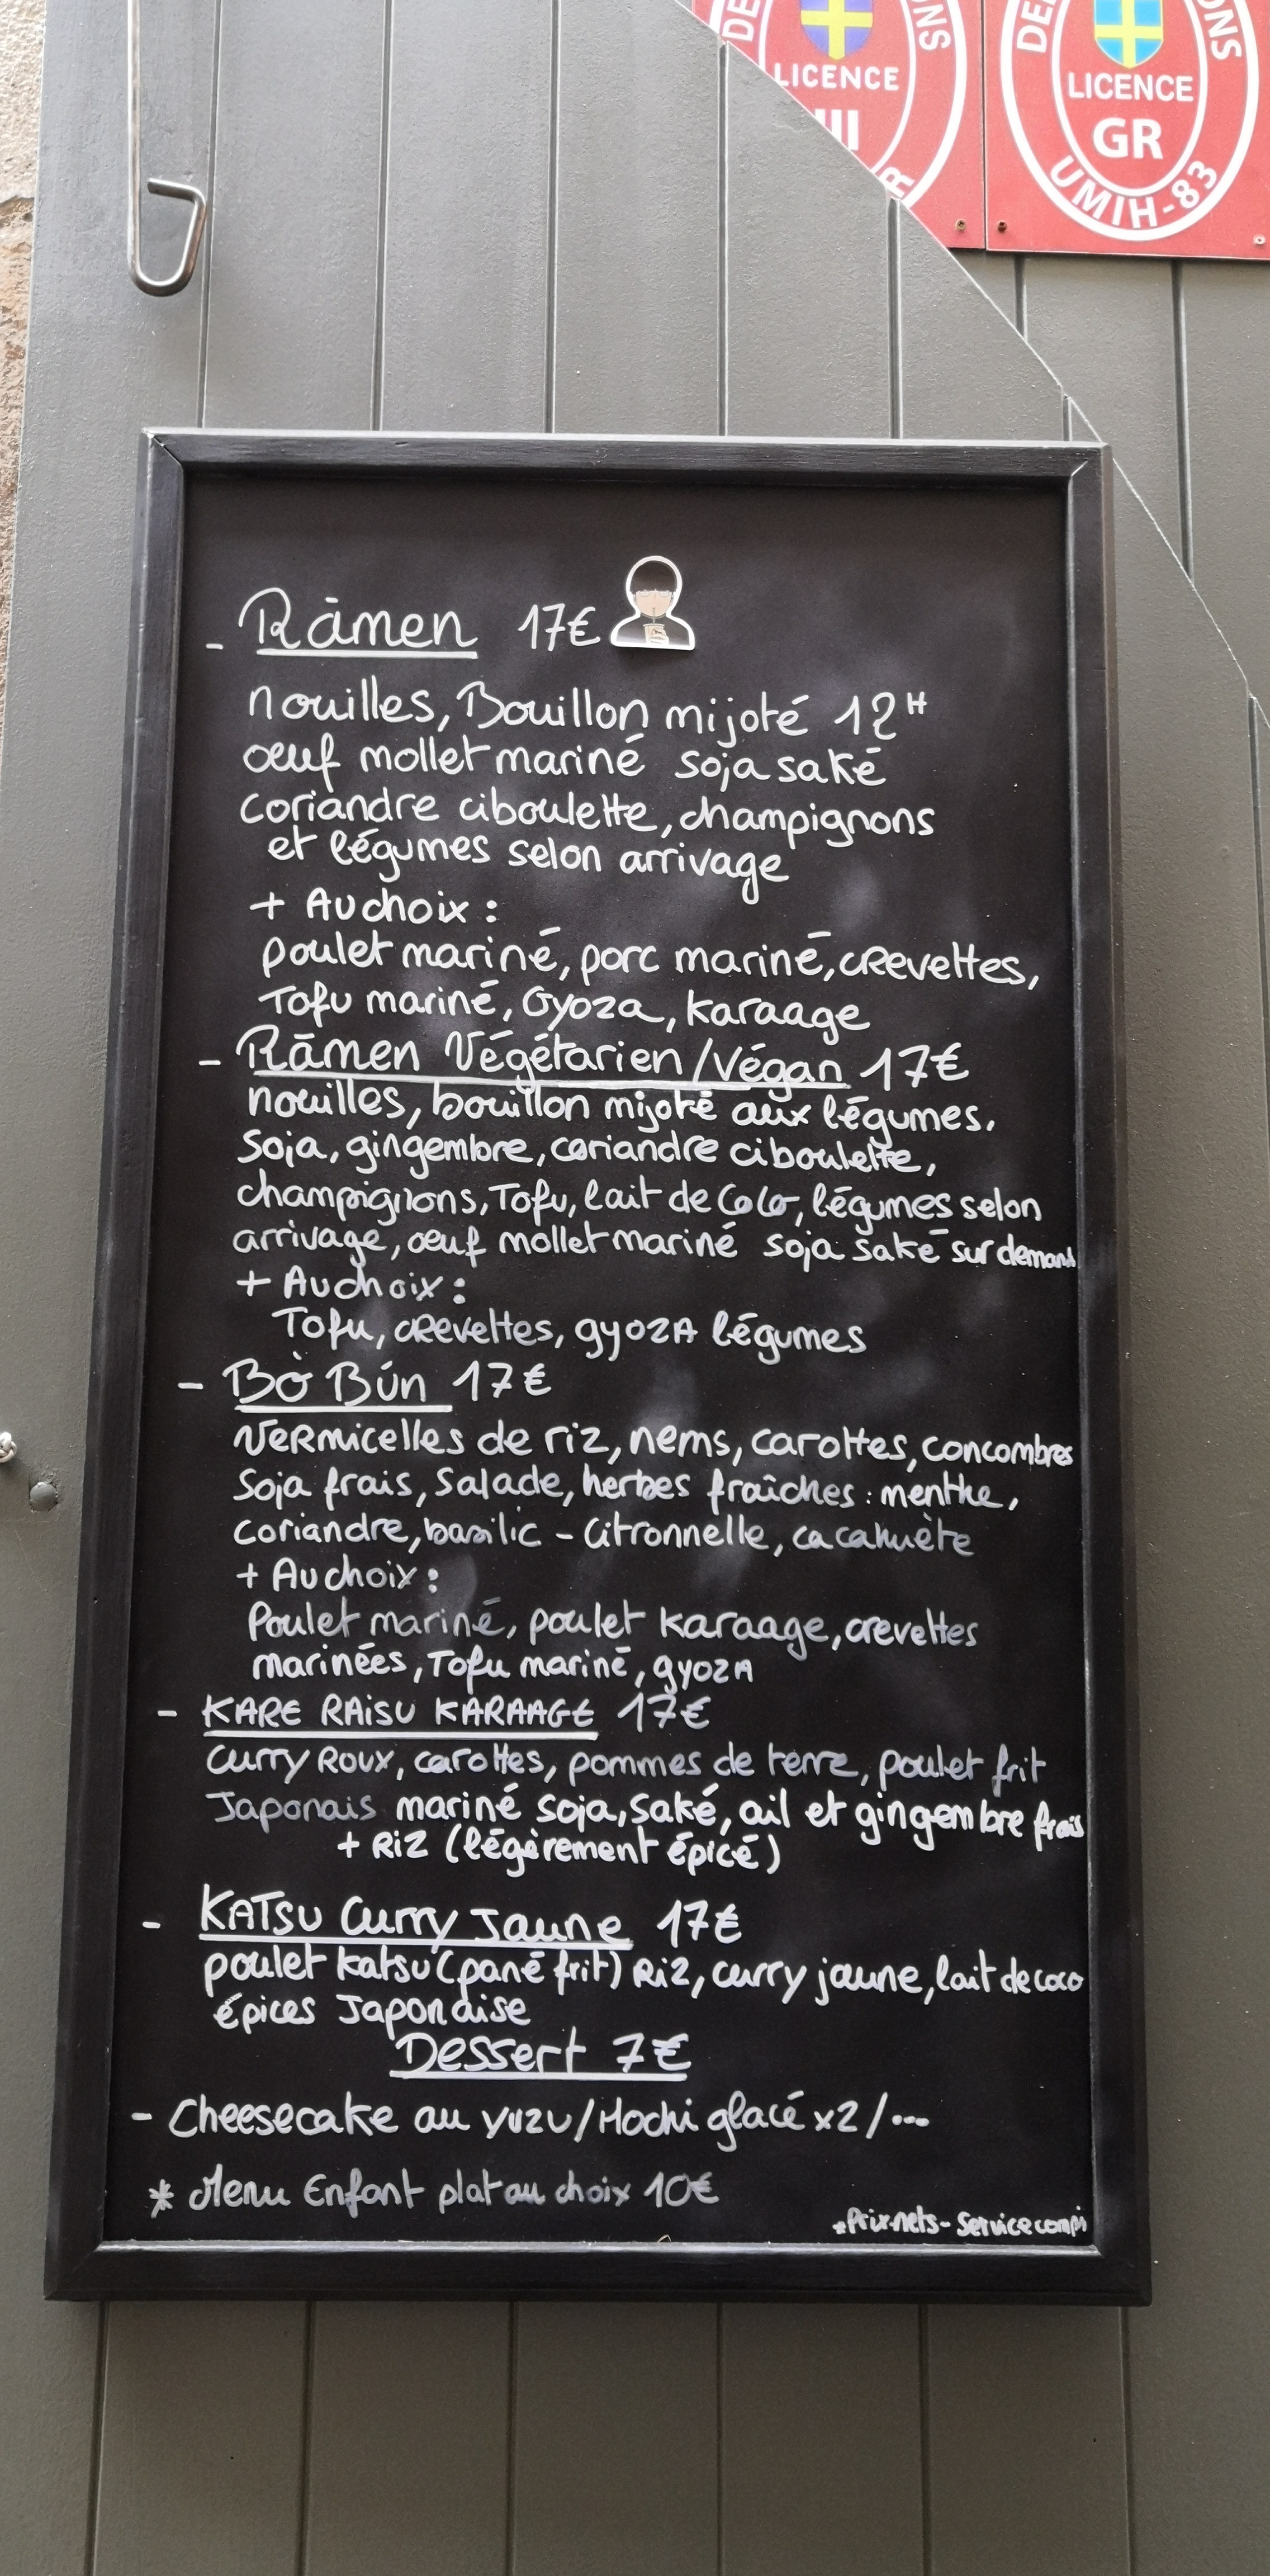 ONS
LICENCE
III
R
DE
ONS
LICENCE
GR
UMIH-83
- Rāmen 17€
nouilles, Bouillon mijoté 12H
œuf mollet mariné soja saké
coriandre ciboulette, champignons
et légumes selon arrivage
+ Au choix :
poulet mariné, porc mariné, crevettes,
Tofu mariné, Gyoza, Karaage
- Rāmen Végétarien/Végan 17€
nouilles, bouillon mijoté aux légumes.
Soja, gingembre, coriandre ciboulette,
champignons, Tofu, lait de Coco, légumes selon
arrivage, œuf mollet mariné soja saké sur demand
+ Au choix :
Tofu, crevettes, gyozA légumes
- Bò Bún 17€
Vermicelles de riz, nems, carottes, concombres
Soja frais, Salade, herbes fraîches : menthe,
coriandre, basilic - Citronnelle, cacahuète
+ Au choix :
Poulet mariné, poulet Karaage, crevettes
marinées, Tofu mariné, gyozA
- KARE RAiSU KARAAGE 17€
Curry Roux, carottes, pommes de terre, poulet frit
Japonais mariné soja, Saké, ail et gingembre frais
+ Riz (légèrement épicé)
- KATSU Curry Jaune 17€
poulet katsu (pané frit) Riz, curry jaune, lait de coco
épices Japonaise
Dessert 7€
- Cheesecake au yuzu / Mochi glacé x2 / ...
* Menu Enfant plat au choix 10€
*Prix nets - Service compi